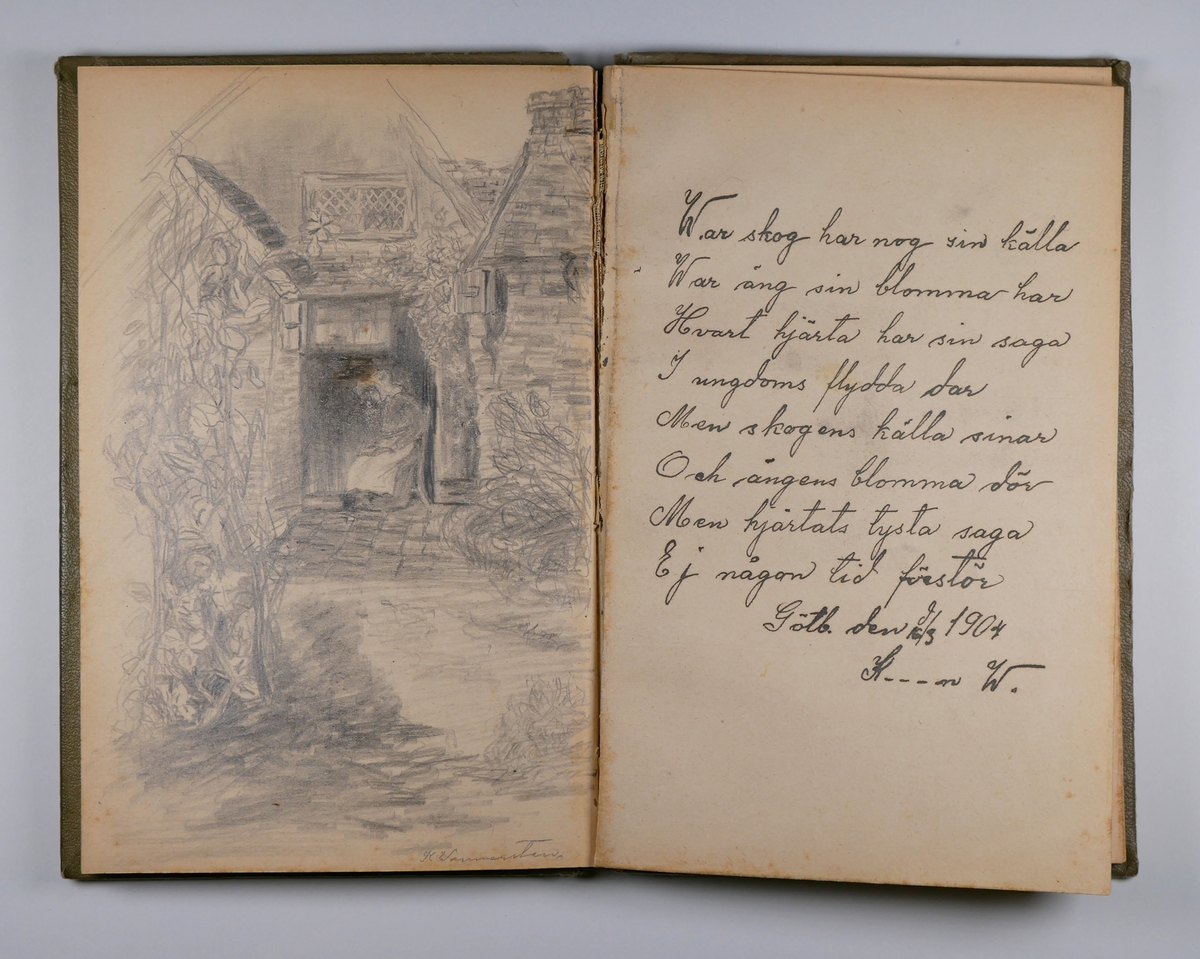 War skog har nog sin källa
War äng sin blomma har
Hvart hjärta har sin saga
I ungdoms flydda dar
Men skogens källa sinar
Och ängens blomma dör
Men hjärtats tysta saga
Ej någon tid förstör
Götb. den 1904
K---n W.